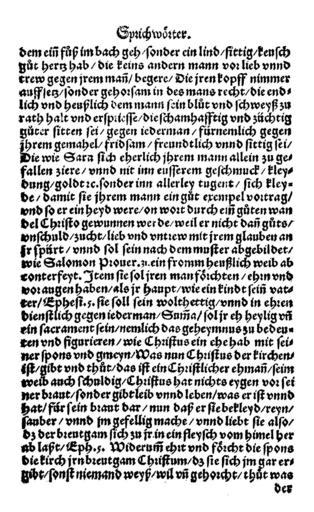 Sprichwörter.
dem ein fůß im bach geh / sonder ein lind / sittig / keusch
gůt hertz hab / die keins andern mann vor lieb vnnd
trew gegen jrem mañ / begere / Die jren kopff nimmer
auffsetz / sonder gehorsam in des mans recht / die end-
lich vnd heußlich dem mann sein blůt vnd schweyß zu
rath halt vnd ersprieße / die schamhafftig vnd züchtig
gůter sitten sei / gegen iederman / fürnemlich gegen
jhrem gemahel / fridsam / freundtlich vnnd sittig sei /
Die wie Sara sich eherlich jhrem mann allein zu ge-
fallen ziere / vnnd nit inn eusserem geschmuck / kley-
dung / goldt ꝛc. sonder inn allerley tugent / sich kley-
de / damit sie jhrem mann ein gůt exempel vortrag /
vnd so er ein heyd were / on wort durch ein gůten wan
del Christo gewunnen werde / weil er nicht dañ gůts /
vnschuld / zucht / lieb vnd vntrew mit jrem glauben an
jr spürt / vnnd sol sein nach dem muster abgebildet /
wie Salomon Prouer. 31. ein fromm heußlich weib ab
conterfeyt. Item sie sol jren man förchten / ehrn vnd
vor augen haben / als jr haupt / wie ein kindt sein vat-
ter / Ephest. 5. sie soll sein wolthettig / vnnd in ehren
dienstlich gegen iederman / Suma / sol jr eh heylig vñ
ein sacrament sein / nemlich das geheymnus zu bedeu-
ten vnd figurieren / wie Christus ein ehe hab mit sei-
ner spons vnd gmeyn / Was nun Christus der kirchen
ist / gibt vnd thůt / das ist ein Christlicher ehmañ / seim
weib auch schuldig / Christus hat nichts eygen vor sei
ner braut / sonder gibt leib vnnd leben / was er ist vnnd
hat / für sein braut dar / nun daß er sie bekleyd / reyn /
sauber / vnnd jm gefellig mache / vnnd liebt sie also /
dz der breutgam sich zu jr in ein fleysch vom himel her
ab laßt / Eph. 5. Widerum ehrt vnd förcht die spons
die kirch jrn breutgam Christum / dz sie sich jm gar er-
gibt / sonst niemand weyß / wil vñ gehorcht / thůt was
der